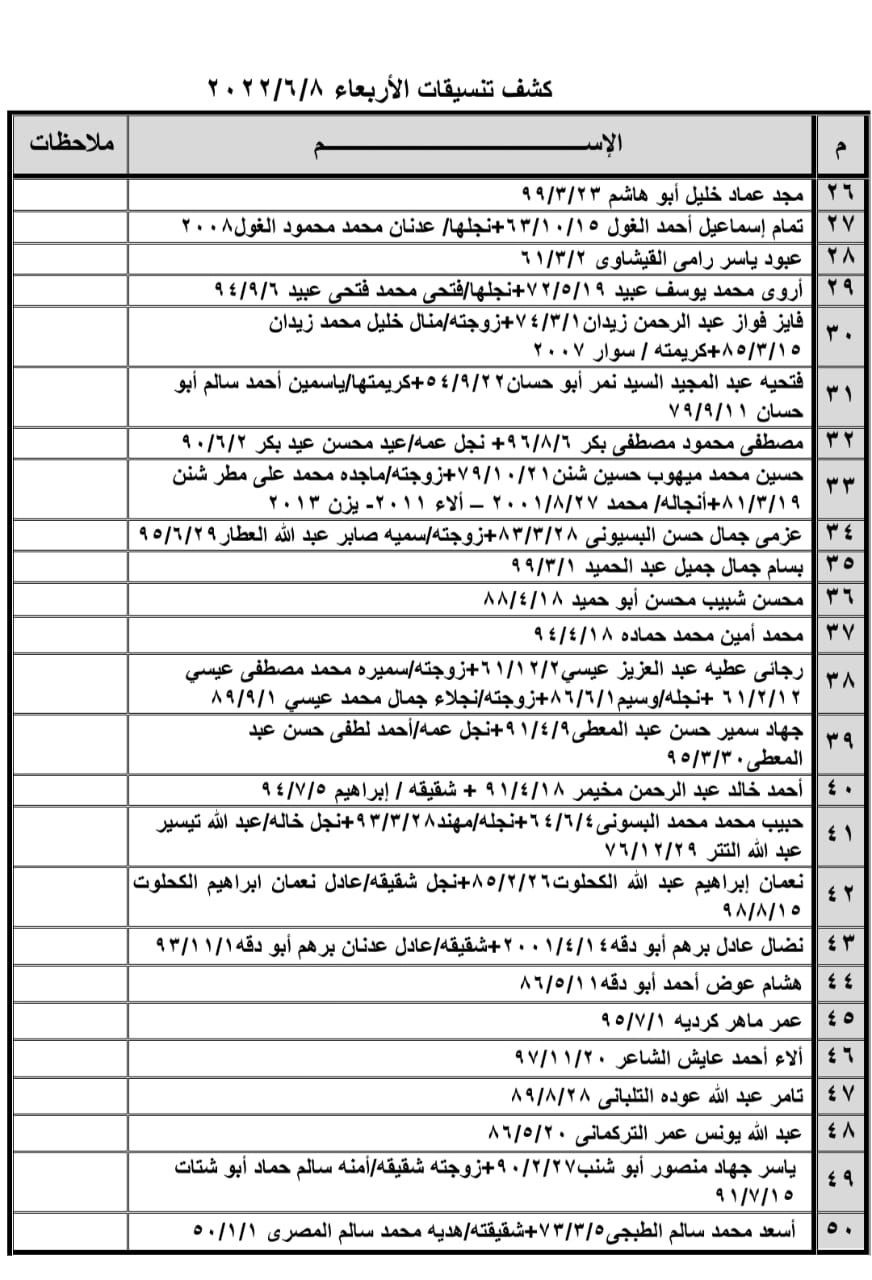 كشف تنسيقات الأربعاء ٢٠٢٢/٦/٨
م الإســـــــــــــــــــم ملاحظات
٢٦ مجد عماد خليل أبو هاشم ٩٩/٣/٢٣
٢٧ تمام إسماعيل أحمد الغول ٦٣/١٠/١٥+نجلها/ عدنان محمد محمود الغول٢٠٠٨
٢٨ عبود ياسر رامى القيشاوى ٦١/٣/٢
٢٩ أروى محمد يوسف عبيد ٧٢/٥/١٩+نجلها/فتحى محمد فتحى عبيد ٩٤/٩/٦
٣٠ فايز فواز عبد الرحمن زيدان٧٤/٣/١+زوجته/منال خليل محمد زيدان
٨٥/٣/١٥+كريمته / سوار ٢٠٠٧
٣١ فتحيه عبد المجيد السيد نمر أبو حسان٥٤/٩/٢٢+كريمتها/ياسمين أحمد سالم أبو
حسان ٧٩/٩/١١
٣٢ مصطفى محمود مصطفى بكر ٩٦/٨/٦+ نجل عمه/عيد محسن عيد بكر ٩٠/٦/٢
٣٣ حسين محمد ميهوب حسين شنن٧٩/١٠/٢١+زوجته/ماجده محمد على مطر شنن
٨١/٣/١٩+أنجاله/ محمد ٢٠٠١/٨/٢٧ – ألاء ٢٠١١- يزن ٢٠١٣
٣٤ عزمى جمال حسن البسيونى ٨٣/٣/٢٨+زوجته/سميه صابر عبد الله العطار٩٥/٦/٢٩
٣٥ بسام جمال جميل عبد الحميد ٩٩/٣/١
٣٦ محسن شبيب محسن أبو حميد ٨٨/٤/١٨
٣٧ محمد أمين محمد حماده ٩٤/٤/١٨
٣٨ رجائى عطيه عبد العزيز عيسي٦١/١٢/٢+زوجته/سميره محمد مصطفى عيسي
٦١/٢/١٢ +نجله/وسيم٨٦/٦/١+زوجته/نجلاء جمال محمد عيسي ٨٩/٩/١
٣٩ جهاد سمير حسن عبد المعطى٩١/٤/٩+نجل عمه/أحمد لطفى حسن عبد
المعطى٩٥/٣/٣٠
٤٠ أحمد خالد عبد الرحمن مخيمر ٩١/٤/١٨ + شقيقه / إبراهيم ٩٤/٧/٥
٤١ حبيب محمد محمد البسونى٦٤/٦/٤+نجله/مهند٩٣/٣/٢٨+نجل خاله/عبد الله تيسير
عبد الله التتر ٧٦/١٢/٢٩
٤٢ نعمان إبراهيم عبد الله الكحلوت٨٥/٢/٢٦+نجل شقيقه/عادل نعمان ابراهيم الكحلوت
٩٨/٨/١٥
٤٣ نضال عادل برهم أبو دقه٢٠٠١/٤/١٤+شقيقه/عادل عدنان برهم أبو دقه٩٣/١١/١
٤٤ هشام عوض أحمد أبو دقه٨٦/٥/١١
٤٥ عمر ماهر كرديه ٩٥/٧/١
٤٦ ألاء أحمد عايش الشاعر ٩٧/١١/٢٠
٤٧ تامر عبد الله عوده التلبانى ٨٩/٨/٢٨
٤٨ عبد الله يونس عمر التركمانى ٨٦/٥/٢٠
٤٩ ياسر جهاد منصور أبو شنب٩٠/٢/٢٧+زوجته شقيقه/أمنه سالم حماد أبو شتات
٩١/٧/١٥
٥٠ أسعد محمد سالم الطبجى٧٣/٣/٥+شقيقته/هديه محمد سالم المصرى ٥٠/١/١